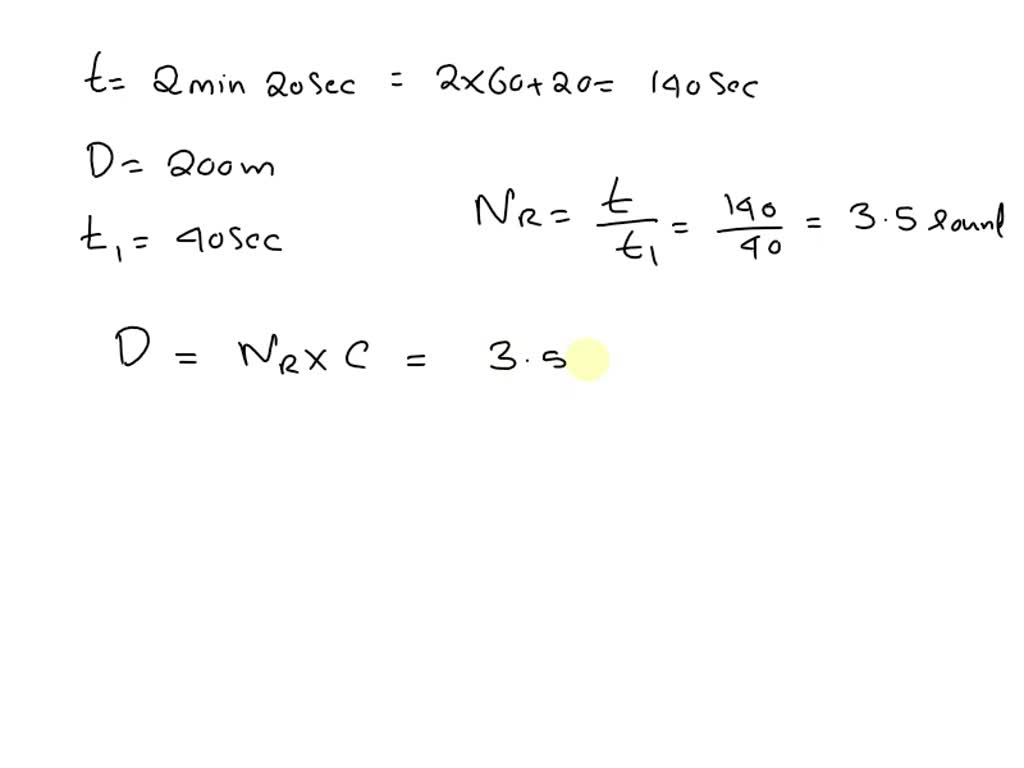 t= 2min 20sec = 2x60+20= 140 Sec
D= 200m
t₁= 40sec
N_R = t/t₁ = 140/40 = 3.5 round
D = N_R x C = 3.5